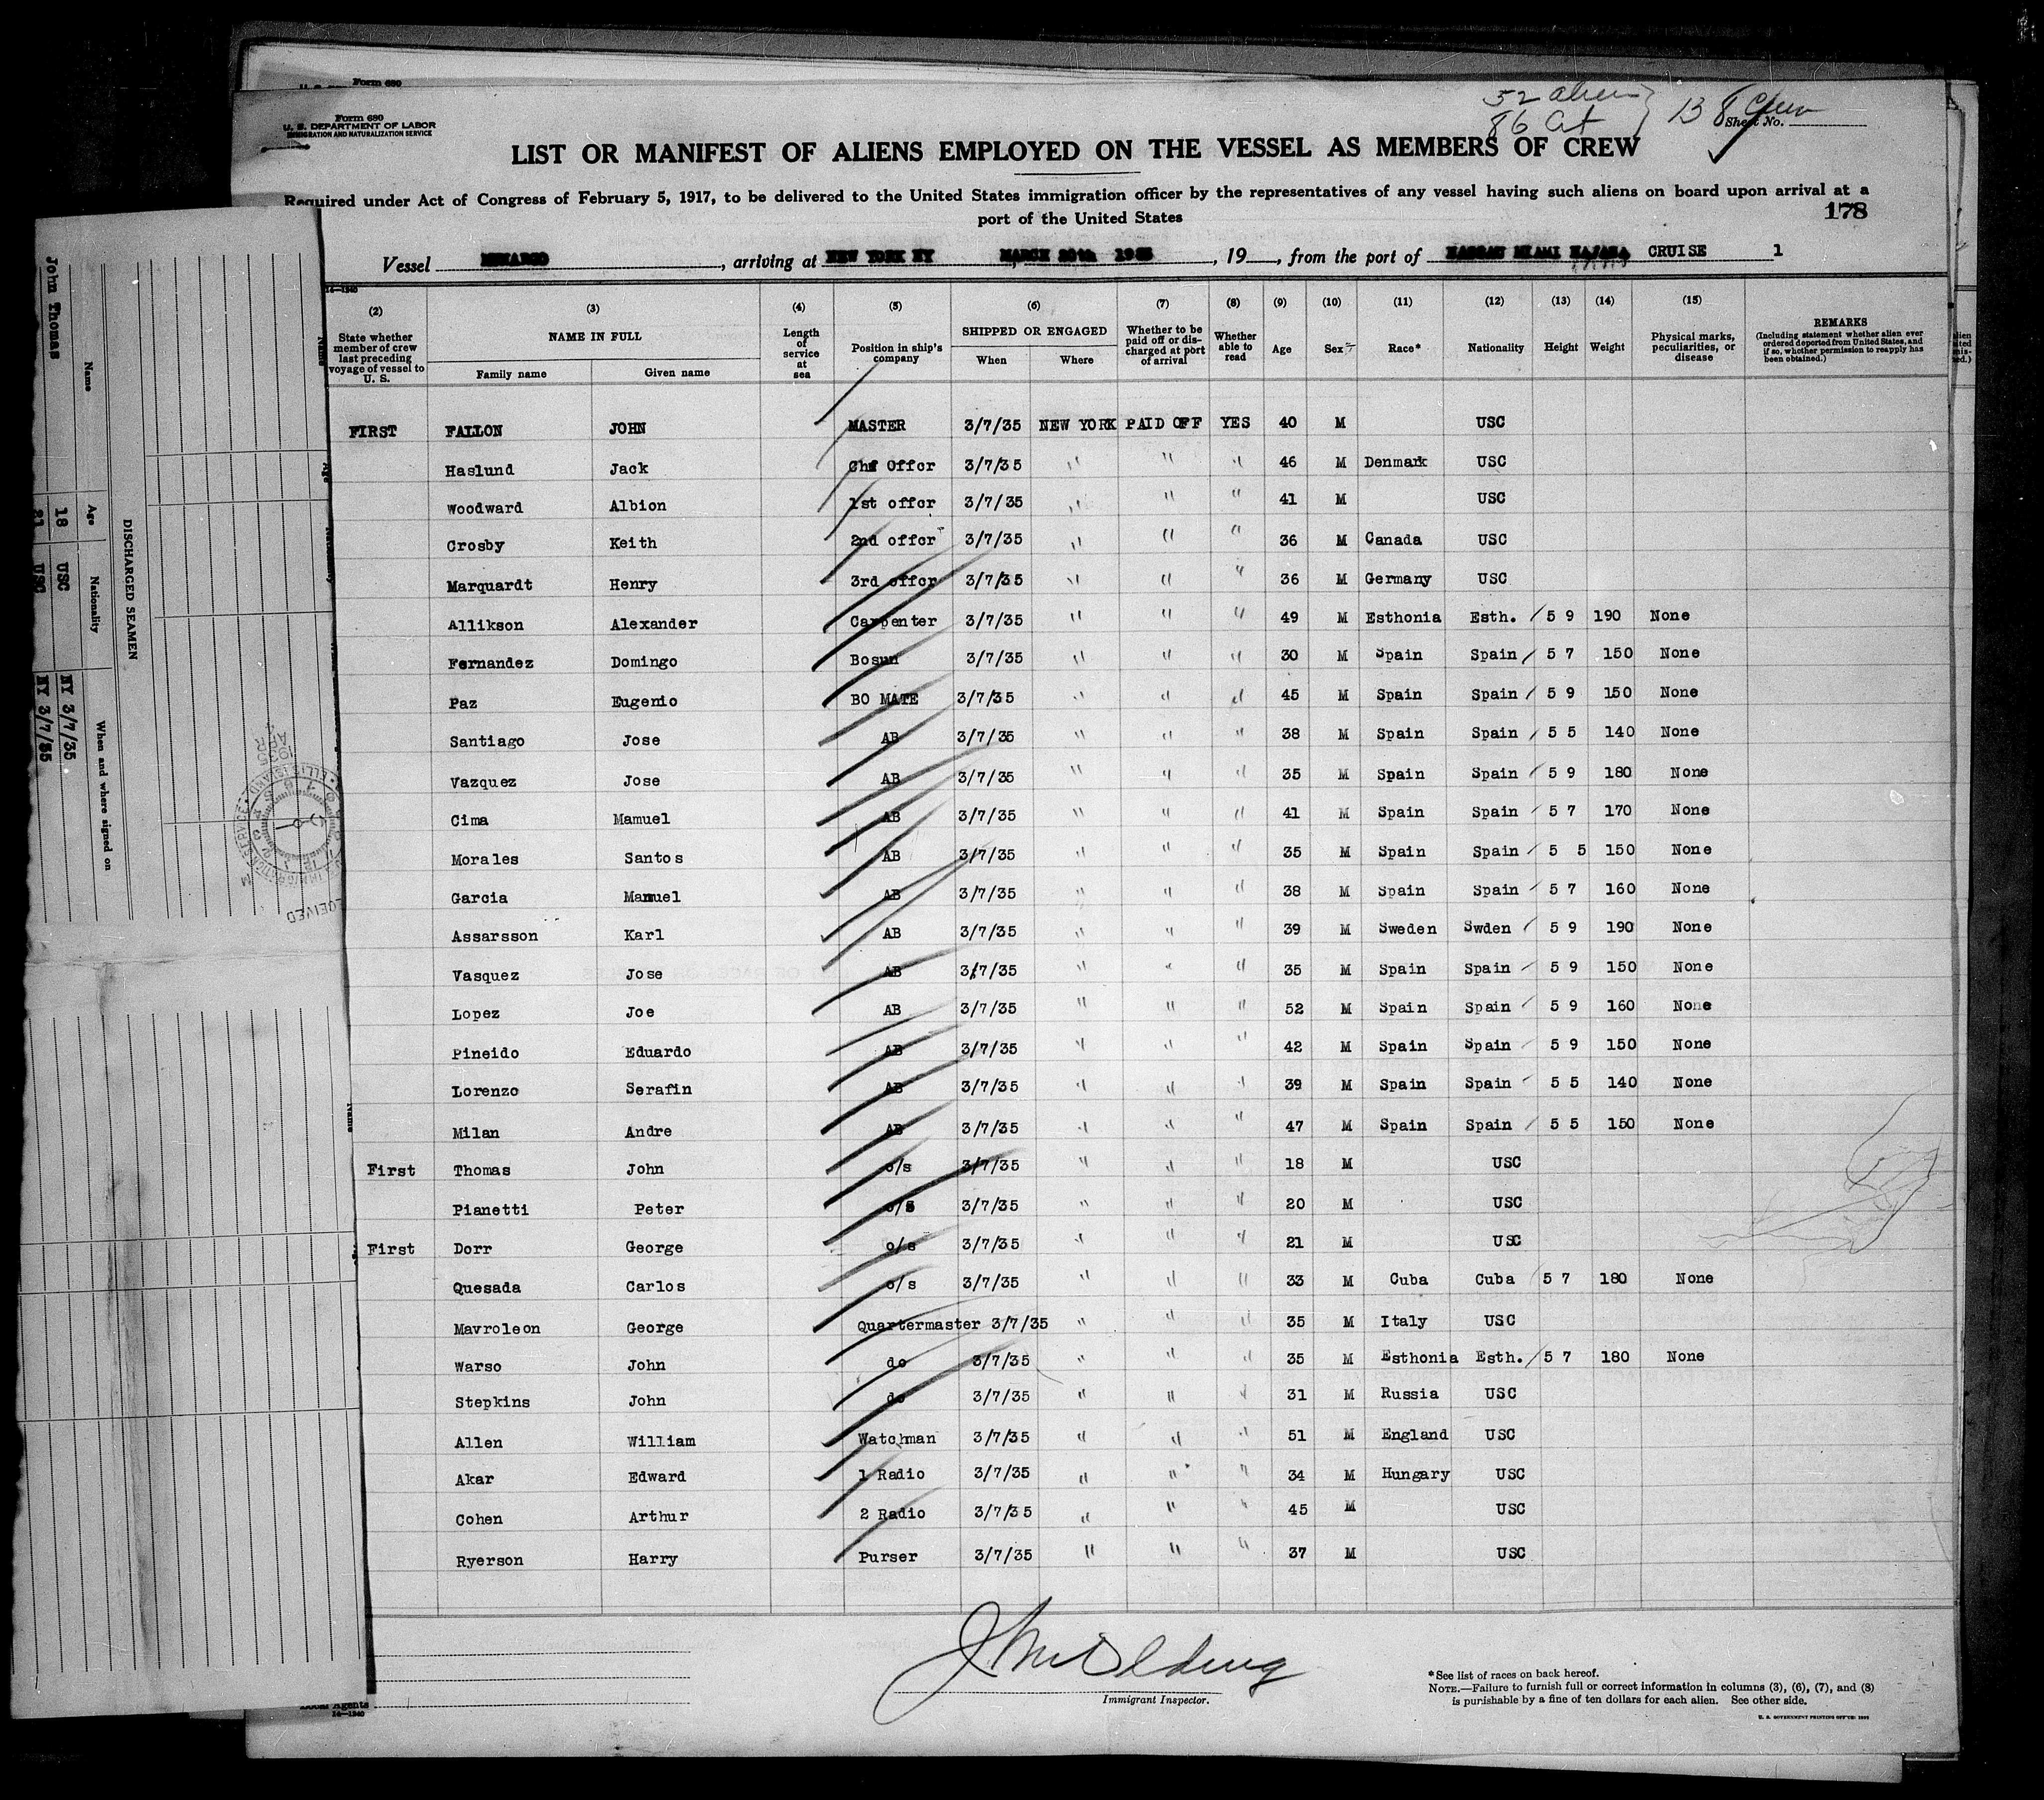 Form 680
Form 680
U. S. DEPARTMENT OF LABOR
IMMIGRATION AND NATURALIZATION SERVICE
52 alien
86 Cit
138 Crew
Sheet No.
LIST OR MANIFEST OF ALIENS EMPLOYED ON THE VESSEL AS MEMBERS OF CREW
Required under Act of Congress of February 5, 1917, to be delivered to the United States immigration officer by the representatives of any vessel having such aliens on board upon arrival at a
port of the United States
178
Vessel MUNARGO, arriving at NEW YORK NY MARCH 20th 1935, 19, from the port of NASSAU MIAMI HAVANA CRUISE 1
14—1240
(2) (3) (4) (5) (6) (7) (8) (9) (10) (11) (12) (13) (14) (15)
State whether member of crew last preceding voyage of vessel to U. S.
NAME IN FULL
Family name Given name
Length of service at sea
Position in ship's company
SHIPPED OR ENGAGED
When Where
Whether to be paid off or discharged at port of arrival
Whether able to read
Age Sex Race* Nationality Height Weight
Physical marks, peculiarities, or disease
REMARKS
(Including statement whether alien ever ordered deported from United States, and if so, whether permission to reapply has been obtained.)
FIRST FALLON JOHN MASTER 3/7/35 NEW YORK PAID OFF YES 40 M USC
Haslund Jack Chf Offcr 3/7/35 " " " 46 M Denmark USC
Woodward Albion 1st offcr 3/7/35 " " " 41 M USC
Crosby Keith 2nd offcr 3/7/35 " " " 36 M Canada USC
Marquardt Henry 3rd offcr 3/7/35 " " " 36 M Germany USC
Allikson Alexander Carpenter 3/7/35 " " " 49 M Esthonia Esth. 5 9 190 None
Fernandez Domingo Bosun 3/7/35 " " " 30 M Spain Spain 5 7 150 None
Paz Eugenio BO MATE 3/7/35 " " " 45 M Spain Spain 5 9 150 None
Santiago Jose AB 3/7/35 " " " 38 M Spain Spain 5 5 140 None
Vazquez Jose AB 3/7/35 " " " 35 M Spain Spain 5 9 180 None
Cima Mamuel AB 3/7/35 " " " 41 M Spain Spain 5 7 170 None
Morales Santos AB 3/7/35 " " " 35 M Spain Spain 5 5 150 None
Garcia Manuel AB 3/7/35 " " " 38 M Spain Spain 5 7 160 None
Assarsson Karl AB 3/7/35 " " " 39 M Sweden Swden 5 9 190 None
Vasquez Jose AB 3/7/35 " " " 35 M Spain Spain 5 9 150 None
Lopez Joe AB 3/7/35 " " " 52 M Spain Spain 5 9 160 None
Pineido Eduardo AB 3/7/35 " " " 42 M Spain Spain 5 9 150 None
Lorenzo Serafin AB 3/7/35 " " " 39 M Spain Spain 5 5 140 None
Milan Andre AB 3/7/35 " " " 47 M Spain Spain 5 5 150 None
First Thomas John o/s 3/7/35 " " " 18 M USC
Pianetti Peter o/s 3/7/35 " " " 20 M USC
First Dorr George o/s 3/7/35 " " " 21 M USC
Quesada Carlos o/s 3/7/35 " " " 33 M Cuba Cuba 5 7 180 None
Mavroleon George Quartermaster 3/7/35 " " " 35 M Italy USC
Warso John do 3/7/35 " " " 35 M Esthonia Esth. 5 7 180 None
Stepkins John do 3/7/35 " " " 31 M Russia USC
Allen William Watchman 3/7/35 " " " 51 M England USC
Akar Edward 1 Radio 3/7/35 " " " 34 M Hungary USC
Cohen Arthur 2 Radio 3/7/35 " " " 45 M USC
Ryerson Harry Purser 3/7/35 " " " 37 M USC
Immigrant Inspector.
*See list of races on back hereof.
NOTE.—Failure to furnish full or correct information in columns (3), (6), (7), and (8)
is punishable by a fine of ten dollars for each alien. See other side.
Local Agents
14—1240
DISCHARGED SEAMEN
Name Age Nationality When and where signed on
John Thomas 18 USC NY 3/7/35
21 USC NY 3/7/35
RECEIVED
IMMIGRATION SERVICE
ELLIS ISLAND